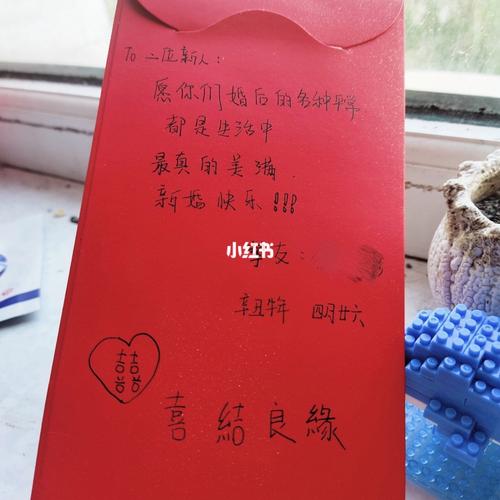 To 二位新人:
愿你们婚后的各种平常
都是生活中
最真的美满.
新婚快乐!!!
小红书
友:
辛丑牛年 四月廿六
囍
喜結良緣